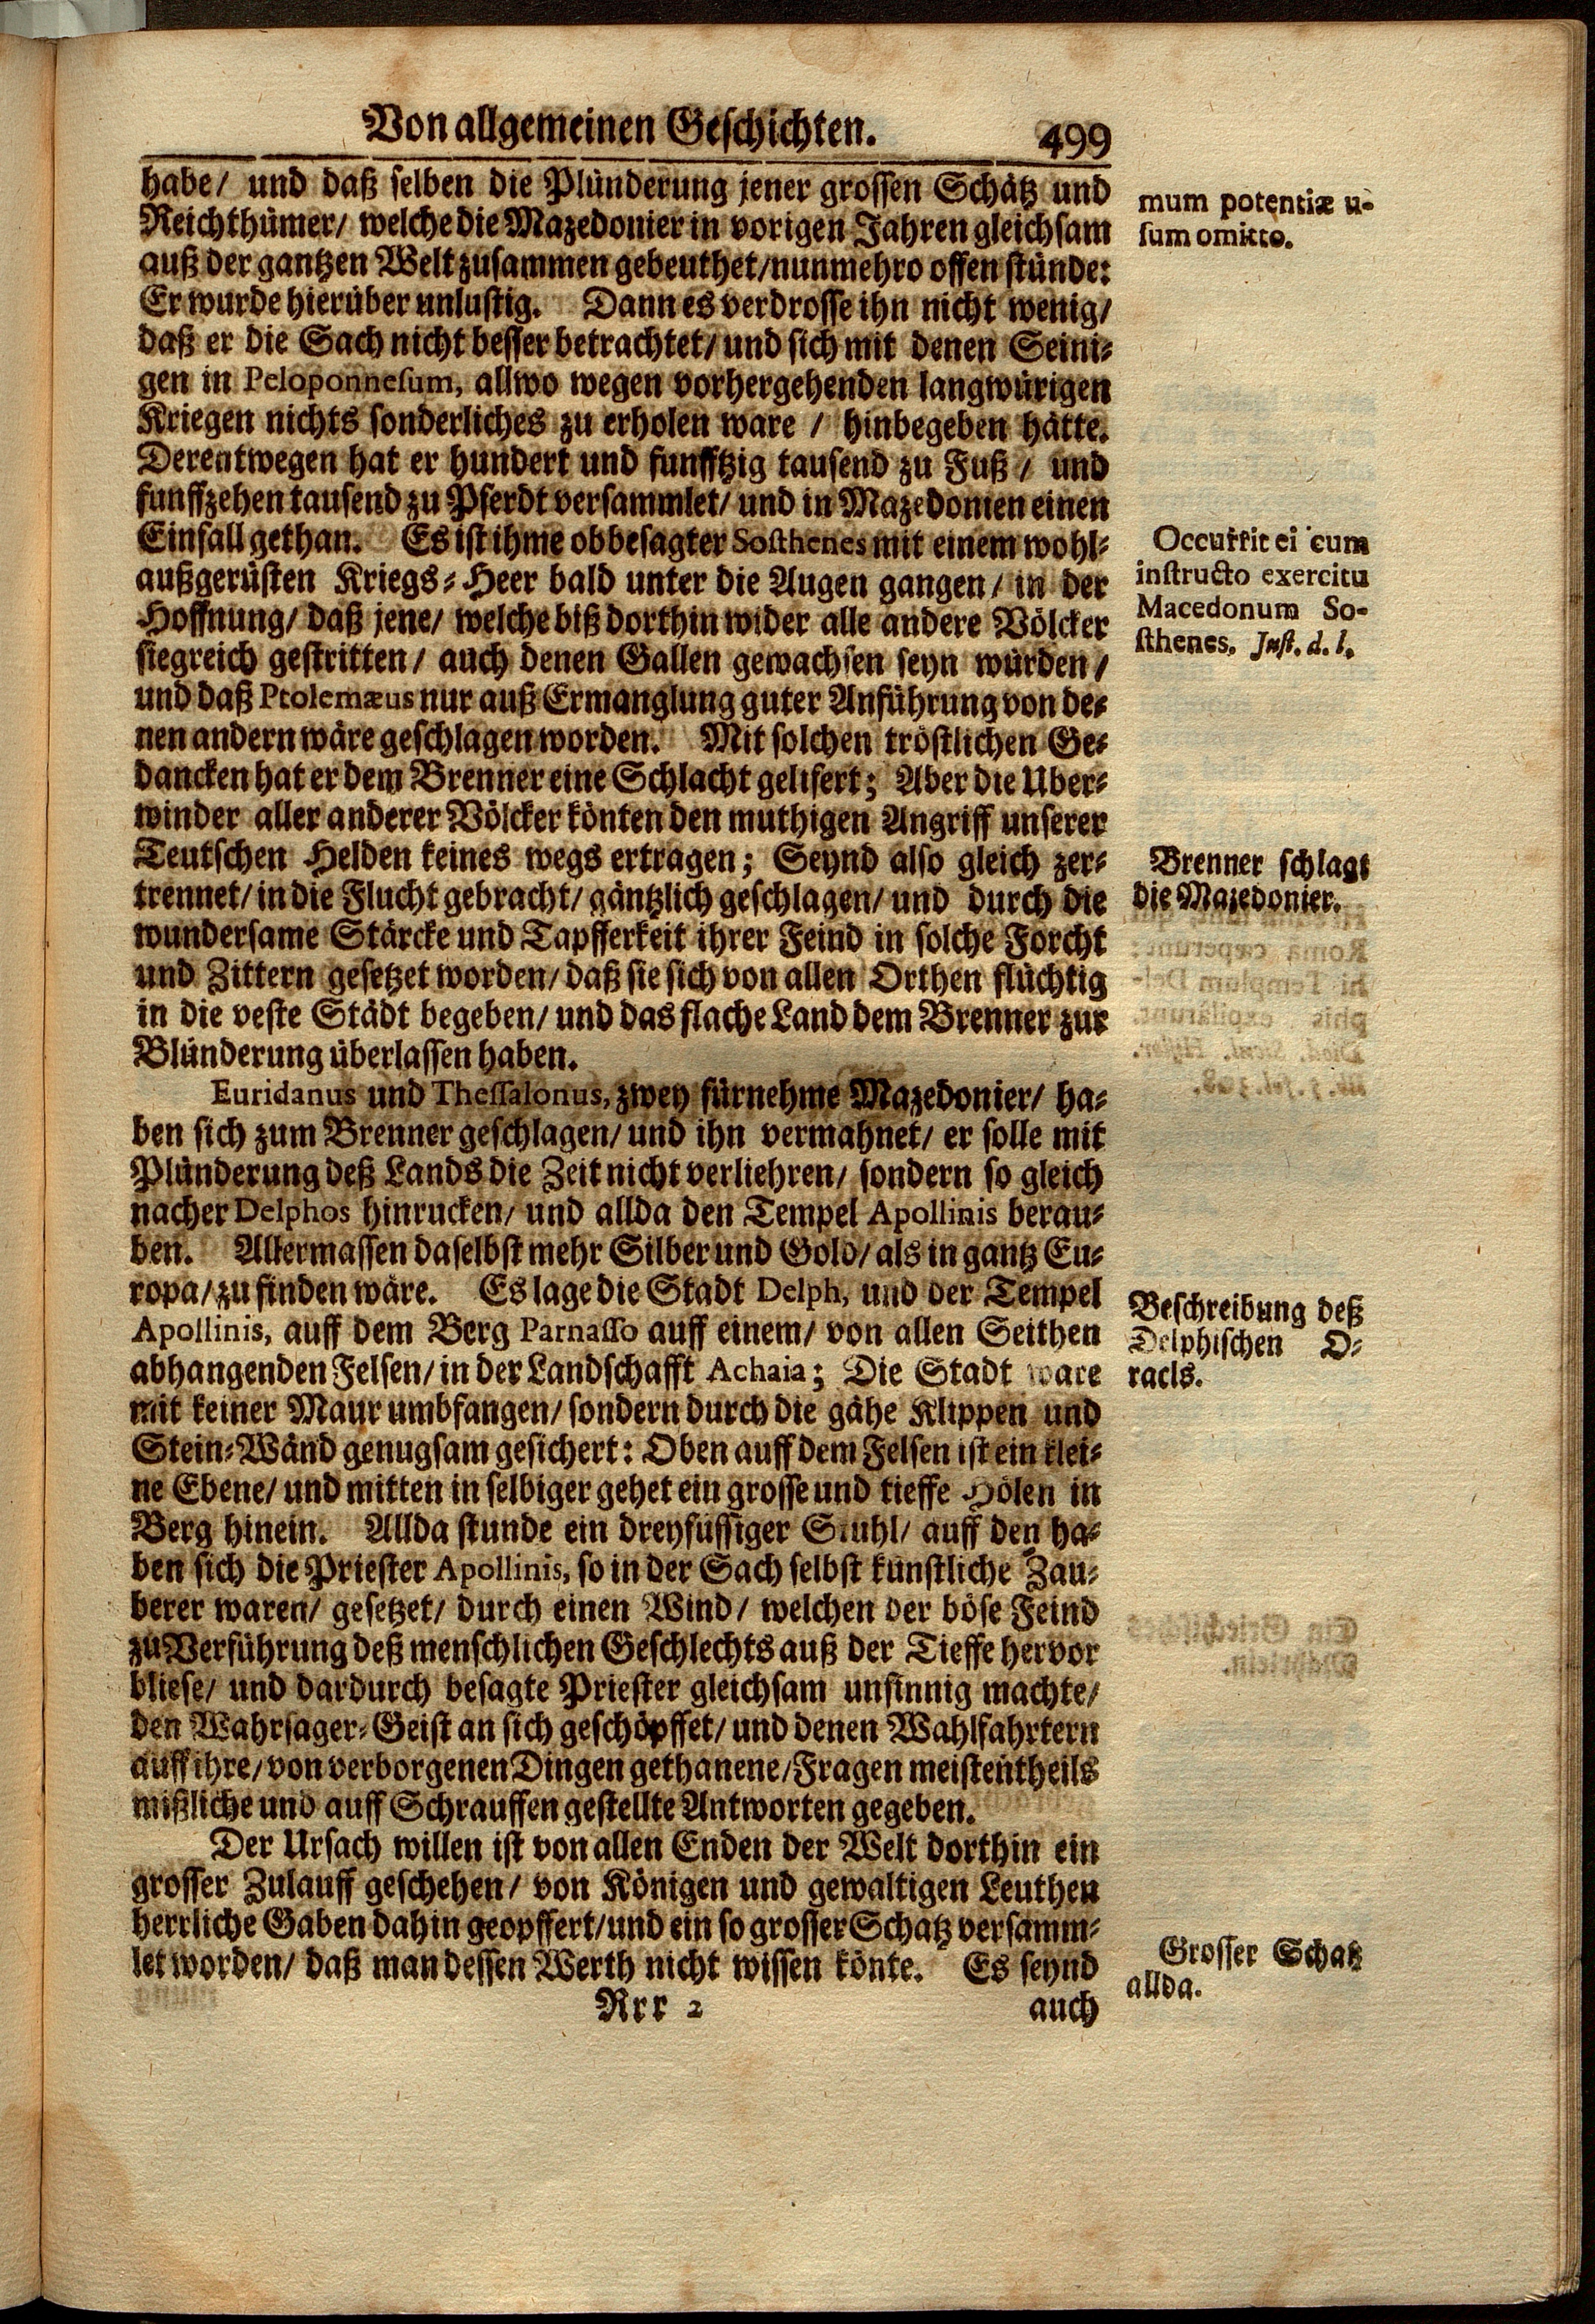 Von allgemeinen Geschichten. 499
habe/ und daß selben die Plünderung jener grossen Schätz und
Reichthümer/ welche die Mazedonier in vorigen Jahren gleichsam
auß der gantzen Welt zusammen gebeuthet/ nunmehro offen stünde:
Er wurde hierüber unlustig. Dann es verdrosse ihn nicht wenig/
daß er die Sach nicht besser betrachtet/ und sich mit denen Seini-
gen in Peloponnesum, allwo wegen vorhergehenden langwürigen
Kriegen nichts sonderliches zu erholen ware / hinbegeben hätte.
Derentwegen hat er hundert und funfftzig tausend zu Fuß / und
funffzehen tausend zu Pferdt versammlet/ und in Mazedonien einen
Einfall gethan. Es ist ihme obbesagter Sosthenes mit einem wohl-
außgerüsten Kriegs-Heer bald unter die Augen gangen / in der
Hoffnung/ daß jene/ welche biß dorthin wider alle andere Völcker
siegreich gestritten / auch denen Gallen gewachsen seyn würden /
und daß Ptolemæus nur auß Ermanglung guter Anführung von de-
nen andern wäre geschlagen worden. Mit solchen tröstlichen Ge-
dancken hat er dem Brenner eine Schlacht gelifert; Aber die Uber-
winder aller anderer Völcker könten den muthigen Angriff unserer
Teutschen Helden keines wegs ertragen; Seynd also gleich zer-
trennet/ in die Flucht gebracht/ gäntzlich geschlagen/ und durch die
wundersame Stärcke und Tapfferkeit ihrer Feind in solche Forcht
und Zittern gesetzet worden/ daß sie sich von allen Orthen flüchtig
in die veste Städt begeben/ und das flache Land dem Brenner zur
Blünderung überlassen haben.
Euridanus und Thessalonus, zwey fürnehme Mazedonier/ ha-
ben sich zum Brenner geschlagen/ und ihn vermahnet/ er solle mit
Plünderung deß Lands die Zeit nicht verliehren/ sondern so gleich
nacher Delphos hinrucken/ und allda den Tempel Apollinis berau-
ben. Allermassen daselbst mehr Silber und Gold/ als in gantz Eu-
ropa/ zu finden wäre. Es lage die Stadt Delph, und der Tempel
Apollinis, auff dem Berg Parnasso auff einem/ von allen Seithen
abhangenden Felsen/ in der Landschafft Achaia; Die Stadt ware
mit keiner Maur umbfangen/ sondern durch die gähe Klippen und
Stein-Wänd genugsam gesichert: Oben auff dem Felsen ist ein klei-
ne Ebene/ und mitten in selbiger gehet ein grosse und tieffe Hölen in
Berg hinein. Allda stunde ein dreyfüssiger Stuhl/ auff den ha-
ben sich die Priester Apollinis, so in der Sach selbst künstliche Zau-
berer waren/ gesetzet/ durch einen Wind / welchen der böse Feind
zu Verführung deß menschlichen Geschlechts auß der Tieffe hervor
bliese/ und dardurch besagte Priester gleichsam unsinnig machte/
den Wahrsager-Geist an sich geschöpffet/ und denen Wahlfahrtern
auff ihre/ von verborgenen Dingen gethanene/ Fragen meistentheils
mißliche und auff Schrauffen gestellte Antworten gegeben.
Der Ursach willen ist von allen Enden der Welt dorthin ein
grosser Zulauff geschehen/ von Königen und gewaltigen Leuthen
herrliche Gaben dahin geopffert/ und ein so grosser Schatz versamm-
let worden/ daß man dessen Werth nicht wissen könte. Es seynd
Rrr 2 auch
mum potentiæ u-
sum omitto.
Occurrit ei cum
instructo exercitu
Macedonum So-
sthenes. Just. d. l.
Brenner schlagt
die Mazedonier.
Beschreibung deß
Delphischen O-
racls.
Grosser Schatz
allda.